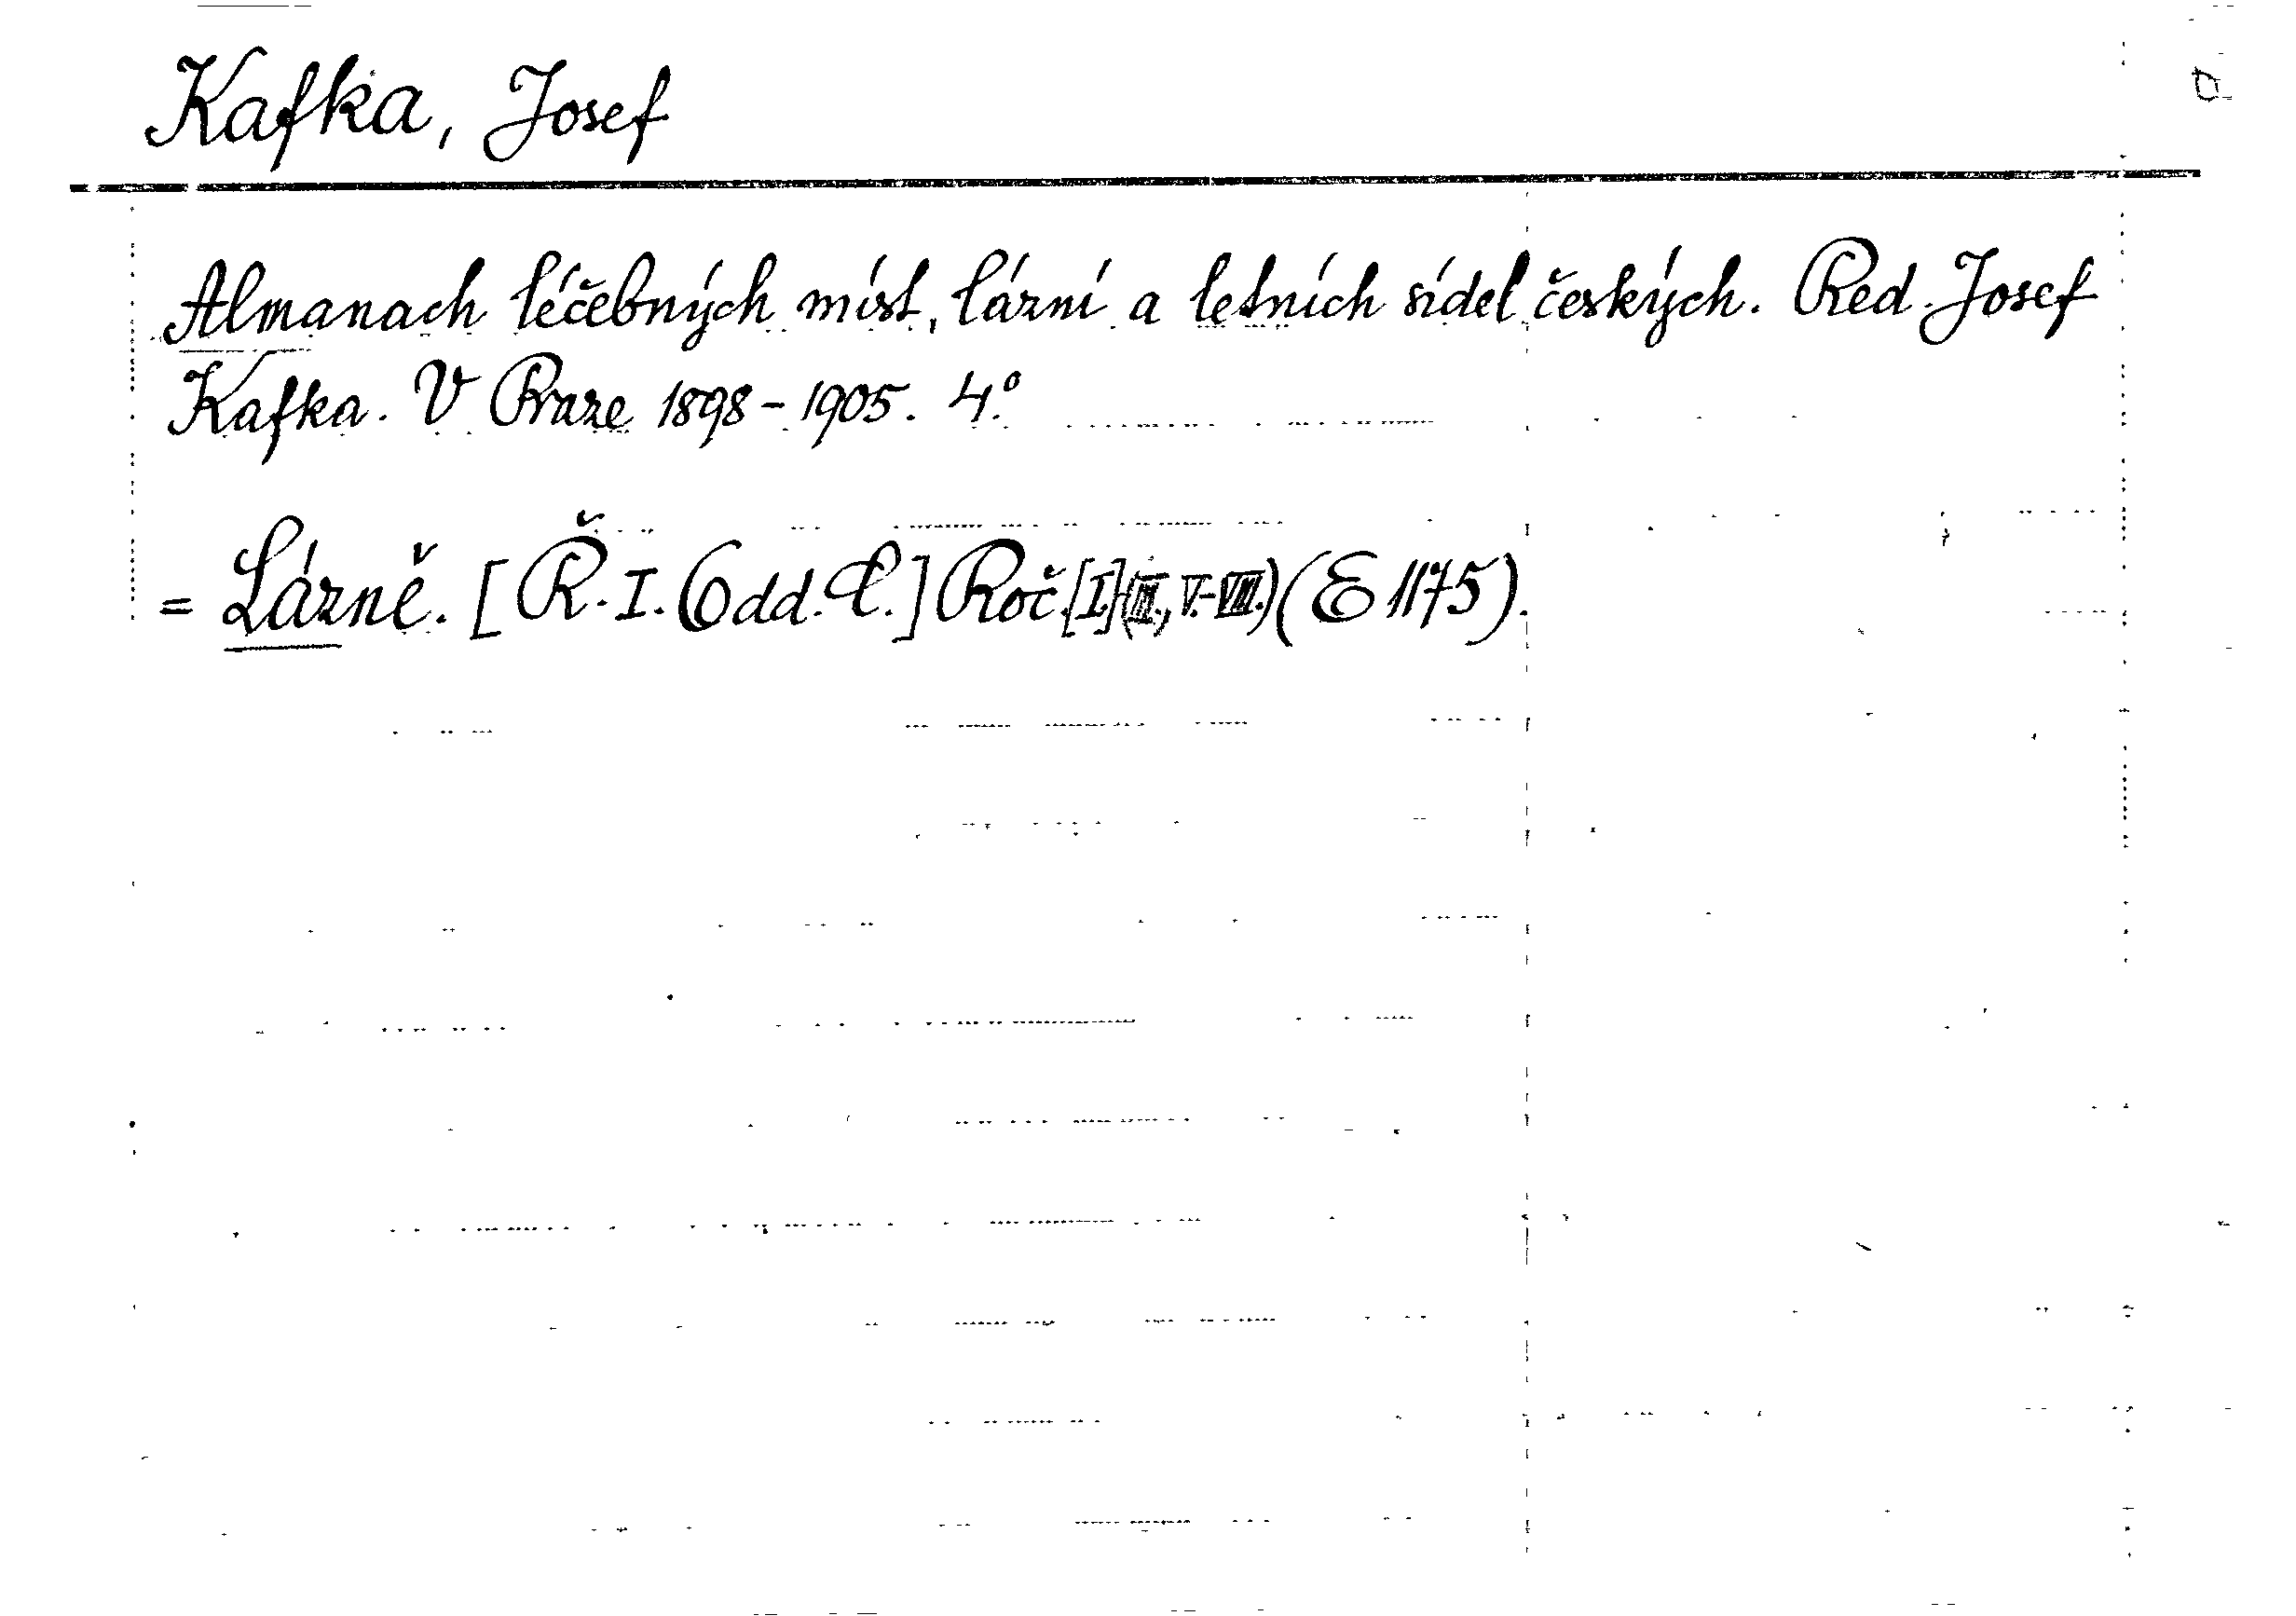 Kafka, Josef
Almanach léčebných míst, lázní a letních sídel českých. Red. Josef
Kafka. V Praze 1898-1905. 4.°
= Lázně. [Ř. I. Odd. C.] Roč. [I.]-(III., V.-VIII.) (E 1175).